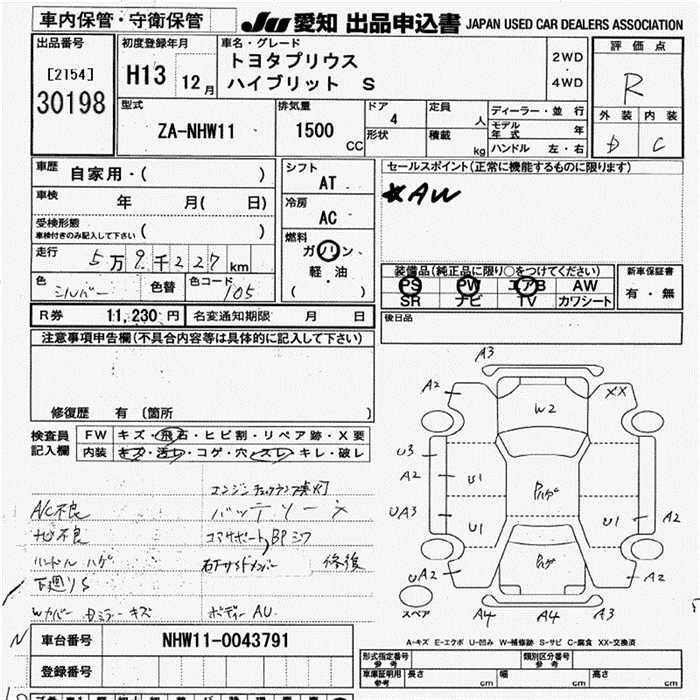 車内保管・守衛保管
JU 愛知 出品申込書 JAPAN USED CAR DEALERS ASSOCIATION
出品番号 [2154] 30198
初度登録年月 H13 12月
車名・グレード トヨタプリウス
ハイブリット S
2WD・4WD
評価点 R
外装 内装
D C
型式 ZA-NHW11
排気量 1500 CC
ドア 4 形状
定員 人
積載 kg
ディーラー・並行
モデル年式 年
ハンドル 左・右
車歴 自家用・( )
車検 年 月( 日)
受検形態
車検付きのみ記入して下さい ( )
走行 5万9千227km
色 シルバー 色替 色コード 105
シフト AT
冷房 AC
燃料 ガソリン
軽・油
( )
セールスポイント(正常に機能するものに限ります)
AW
装備品(純正品に限り○をつけてください)
PS PW エアB AW
SR ナビ TV カワシート
新車保証書
有・無
R券 11,230円 名変通知期限 月 日
後日品
注意事項申告欄(不具合内容等は具体的に記入して下さい)
修復歴 有(箇所 )
検査員記入欄
FW キズ・飛石・ヒビ割・リペア跡・X要
内装 キズ・汚レ・コゲ・穴・スレ・キレ・破レ
エンジンチェックランプ点灯
A/C不良
ナビ不良
ハンドルハゲ
下廻りS
Wカバー ミラーキズ
ボディーAU
修復
A3
A2
XX
W2
U3
A2
U1
UA3
U1
U1
A2
UA2
A2
スペア
A4 A4 A3
A-キズ E-エクボ U-凹み W-補修跡 S-サビ C-腐食 XX-交換済
車台番号 NHW11-0043791
登録番号
形式指定番号 参考
類別区分番号 参考
車庫証明用 参考 長さ cm 幅 cm 高さ cm